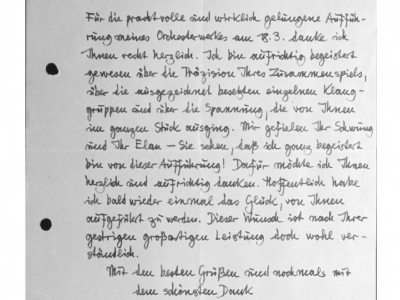 Für die prachtvolle und wirklich gelungene Auffüh-
rung meines Orchesterwerkes am 18.3. danke ich
Ihnen recht herzlich. Ich bin aufrichtig begeistert
gewesen über die Präzision Ihres Zusammenspiels,
über die ausgezeichnet besetzten einzelnen Klang-
gruppen und über die Spannung, die von Ihnen
im ganzen Stück ausging. Mir gefielen Ihr Schwung
und Ihr Elan – Sie sehen, daß ich ganz begeistert
bin von dieser Aufführung! Dafür möchte ich Ihnen
herzlich und aufrichtig danken. Hoffentlich habe
ich bald wieder einmal das Glück, von Ihnen
aufgeführt zu werden. Dieser Wunsch ist nach Ihrer
gestrigen großartigen Leistung doch wohl ver-
ständlich.
Mit den besten Grüßen und nochmals mit
dem schönsten Dank